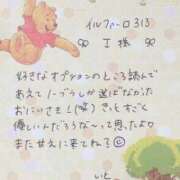 イルブルーロ313
丁様
好きなオプションのところ読んで
あえてノーブラしか選ばなかった
おにいさま！(笑) きっとすごく
優しいんだろうな〜って思ったよ♡
また甘えに来てね♡☺